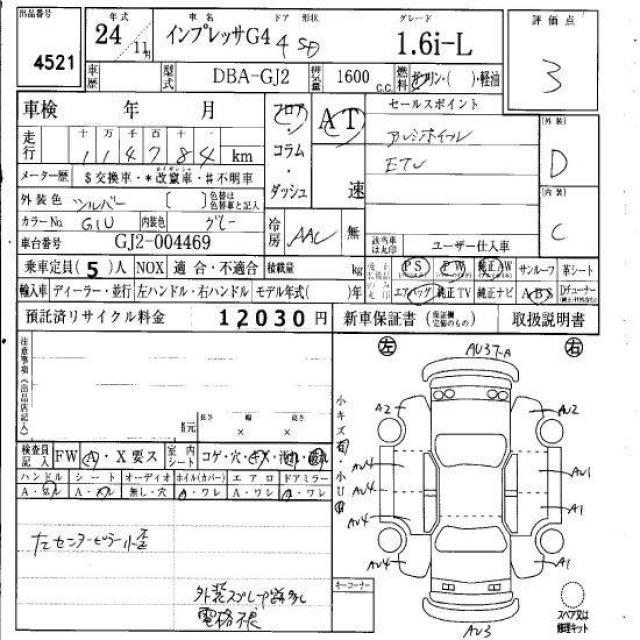 出品番号
4521
年式
24年 11月
車名
インプレッサG4
ドア 形状
4 SD
グレード
1.6i-L
評価点
3
車歴
型式
DBA-GJ2
排気量
1600 c.c.
燃料
ガソリン・( )・軽油
車検 年 月
フロア・コラム・ダッシュ
AT
速
セールスポイント
アルミホイール
ETC
[外装]
D
[内装]
C
走行
十 万 千 百 十 一
114784 km
メーター歴
$交換車・*改竄車・#不明車
外装色
シルバー
[ ]
色替は色替車と記入
カラーNo.
G1U
内装色
グレー
冷房
AAC
無
車台番号
GJ2-004469
該当車は丸印
ユーザー仕入車
乗車定員(5)人
NOX 適合・不適合
積載量 kg
PS PW 純正AW サンルーフ 革シート
輸入車 ディーラー・並行
左ハンドル・右ハンドル
モデル年式( )年
エアバッグ 純正TV 純正ナビ ABS Dチューナー
預託済リサイクル料金
12030円
新車保証書(保証継定備のもの)
取扱説明書
注意事項(出品店記入)
諸元
長さ 幅 高さ
× ×
左 右
AU37-A
小キズ有・小U有
A2 AU2
AU4 AU1
AU4 A1
AU4 A1
AU3
検査員記入
FW
A・X要ス
室内シート
コゲ・穴・キズ・汚れ・破れ
ハンドル シート オーディオ ホイル(カバー) エアロ ドアミラー
無し・穴 A・ワレ A・ワレ A・ワレ
左センターピラー小歪
外装スプレー跡多し
電格不良
キーコーナー
スペア又は修理キット